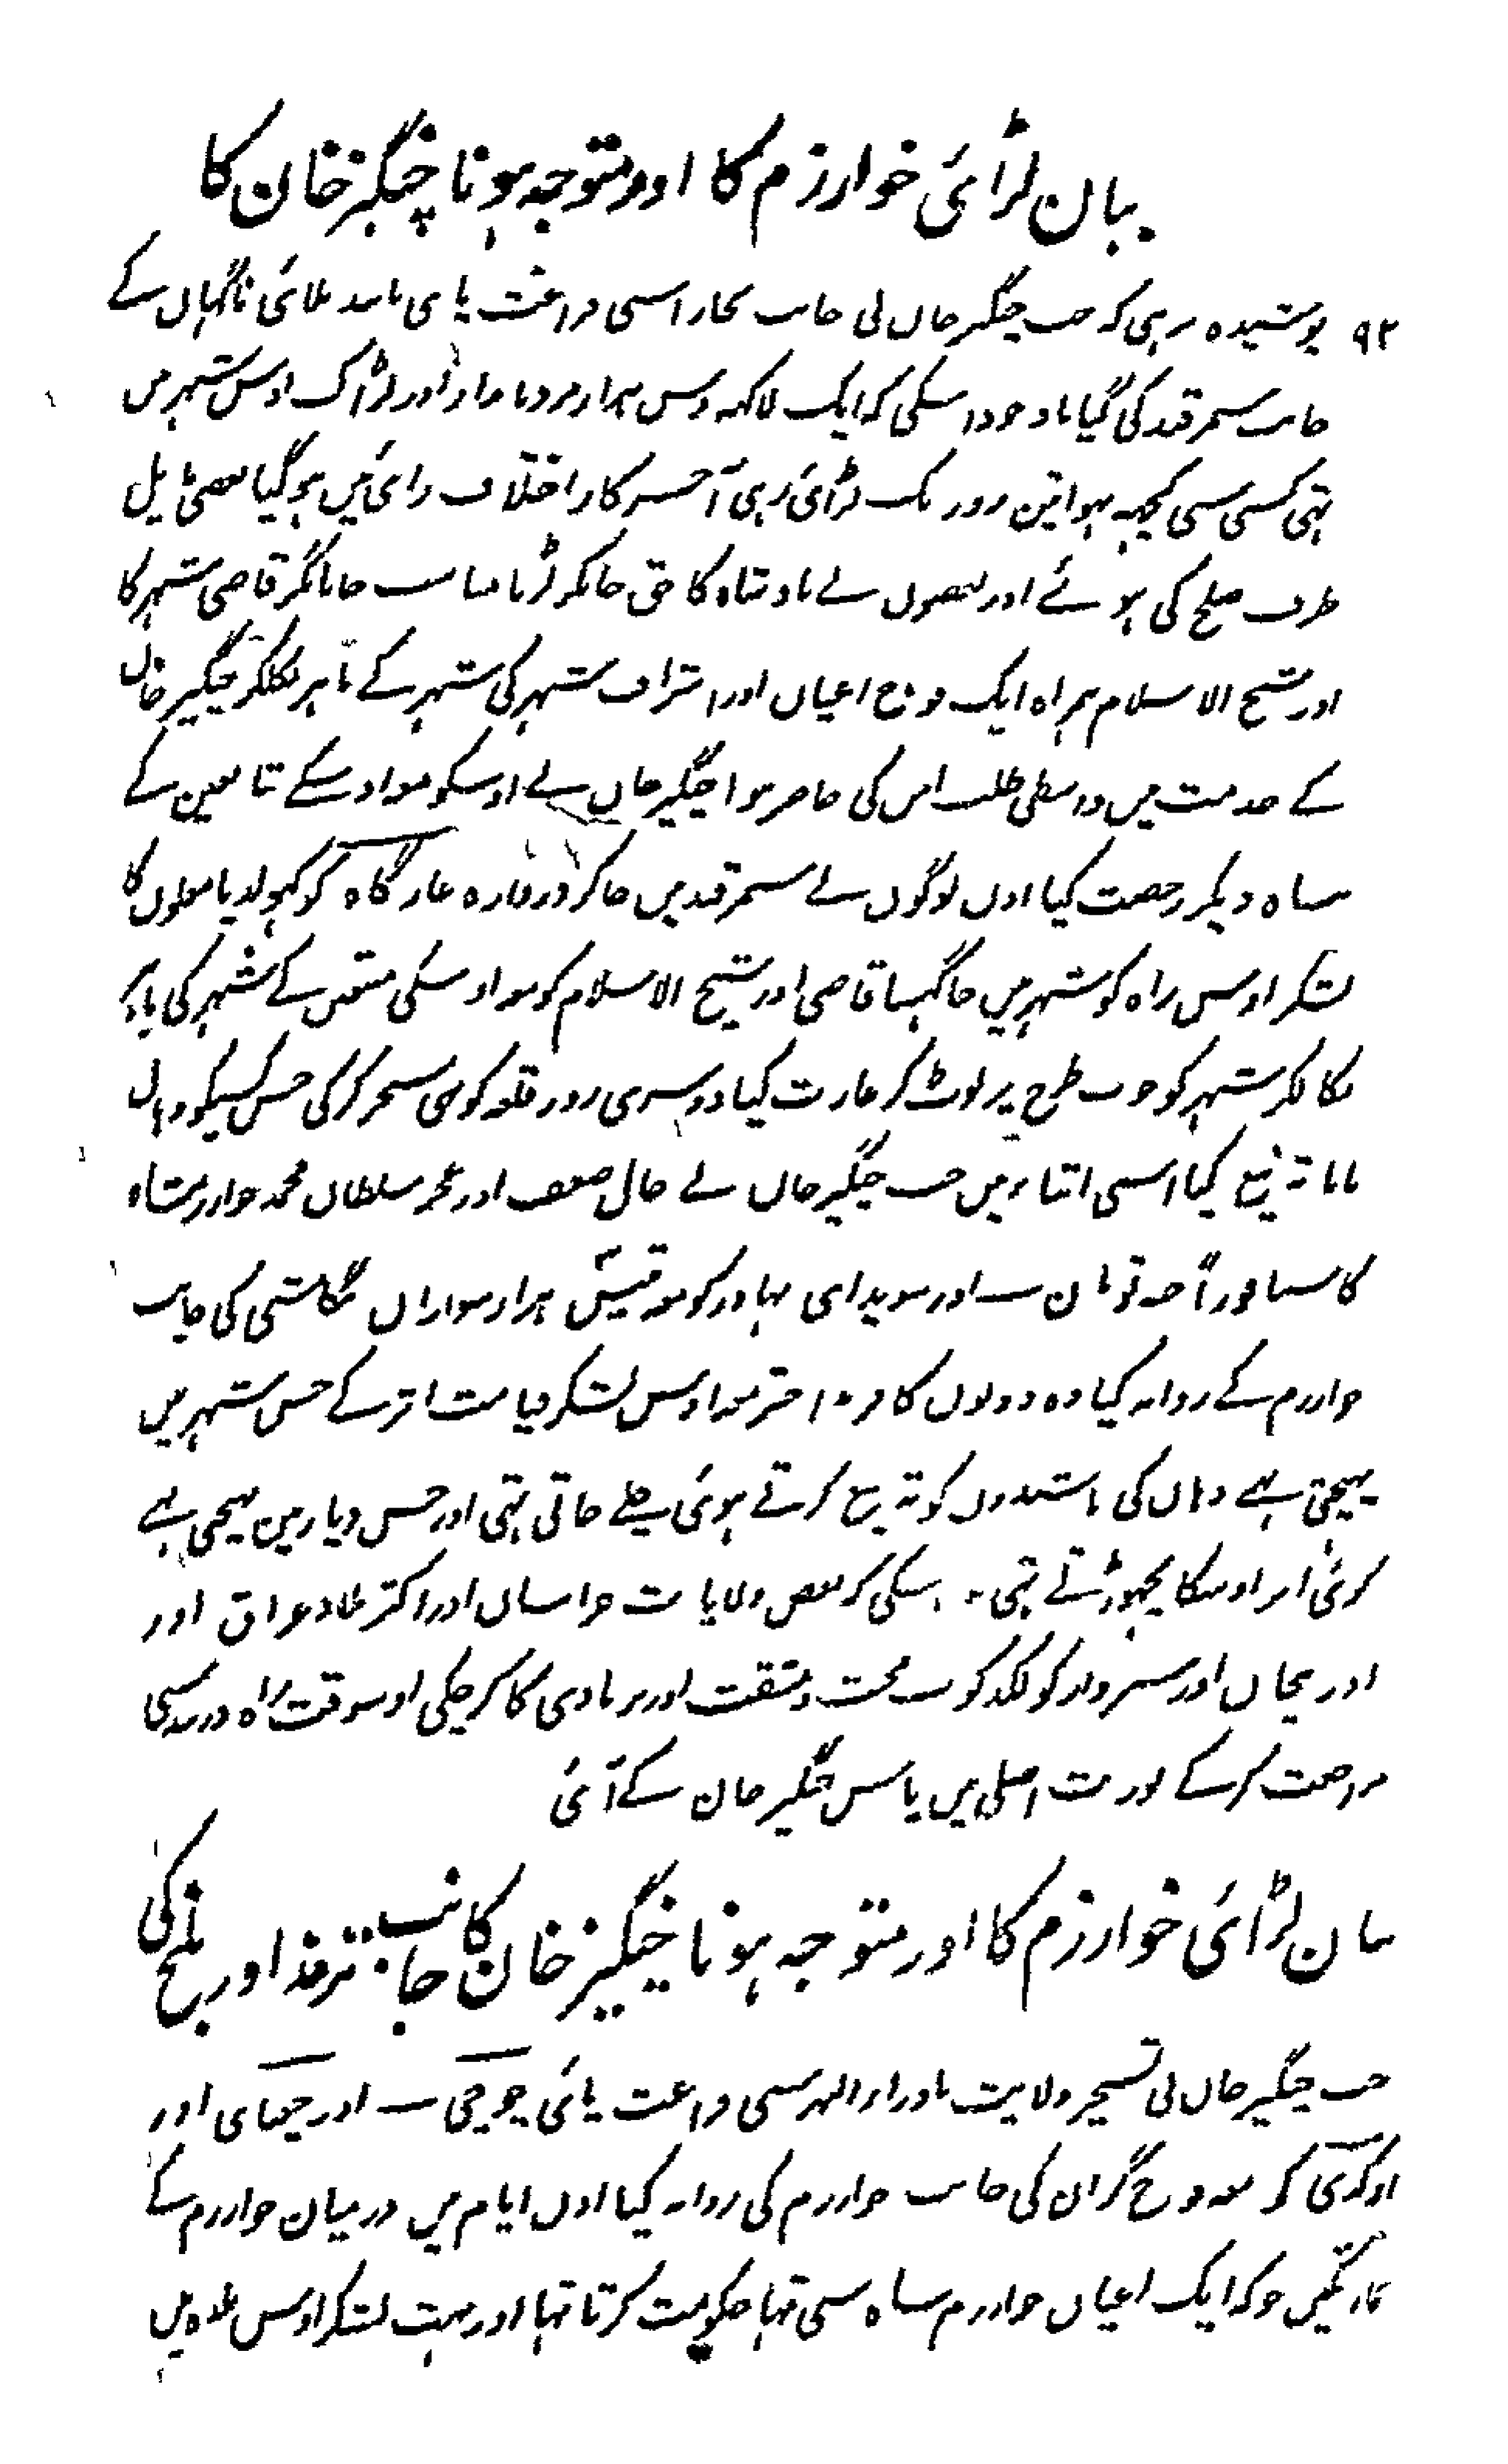 بیان لڑائی خوارزم کا اور متوجہ ہونا چنگیز خان کا
۹۲ پوشیدہ رہی کہ جب چنگیر خاں نی جانب بخارا سی فراغت پائی مانند بلائی ناگہاں کے
جانب سمرقند کی گیا باوجود اسکی کہ ایک لاکھہ دس ہزار مرد نامدار اور لڑاک اوس شہر میں
تہی کسی سی کچہہ نہوا تین روز تک لڑائی رہی آخر کار اختلاف رائی میں ہوگیا بعضی مایل
طرف صلح کی ہوئے اور بعضوں نے بادشاہ کا حق جانکر لڑنا مناسب جانا مگر قاضی شہر کا
اور شیخ الاسلام ہمراہ ایک فوج اعیاں اور اشراف شہر کی شہر کے باہر نکلکر چنگیر خاں
کے خدمت میں واسطی طلب امن کی حاضر ہوا چنگیر خاں نے اوسکو معہ اوسکے تابعین کے
پناہ دیکر رخصت کیا اون لوگوں نے سمرقند میں جا کر دروازہ نمازگاہ کو کہولدیا مغلوں کا
لشکر اوس راہ کو شہر میں جا گہسا قاضی اور شیخ الاسلام کو معہ اوسکی متعلقین کے شہر کی باہر
نکالکر شہر کو خوب طرح پر لوٹ کر غارت کیا دوسری روز قلعہ کو بھی مسخر کر کی جس کسیکو وہاں
پایا تہ تیغ کیا اسی اثناء میں جب چنگیر خاں نے حال ضعف اور عجز سلطاں محمد خوارزمشاہ
کا سنا فوراً جبہ نویان اور سوبدای بہادر کو معہ تیس ہزار سواراں جنگی کی جانب
خوارزم کے روانہ کیا وہ دونوں کافر معہ اوس لشکر قیامت اثر کے جس شہر میں
پہنچتی ہے وہاں کی باشندوں کو تہ تیغ کرتے ہوئی چلے جاتی تہی اور جس دیار میں پہنچی ہے
کوئی امر اوسکا نچہوڑتے تہی بعض ولایات خراساں اور اکثر بلاد عراق اور
آذربیجاں اور سبزوار کو لکد کوب محنت و مشقت اور بربادی کا کر چکی اوسوقت راہ دربند سی
مراجعت کر کے یورت اصلی میں پاس چنگیر خان کے آئی
بیان لڑائی خوارزم کا اور متوجہ ہونا چنگیز خان کا جانب ترمذ اور بلخ کی
جب چنگیر خاں نی تسخیر ولایت ماوراء النہر سی فراغت پائی جوجی اور جغتای اور
اوکدی کو معہ فوج گران کی جانب خوارزم کی روانہ کیا اون ایام میں درمیان خوارزم کے
خمارتگیں جو کہ ایک اعیاں خوارزم شاہ سی تہا حکومت کرتا تہا اور بہت لشکر اوس علاقہ میں